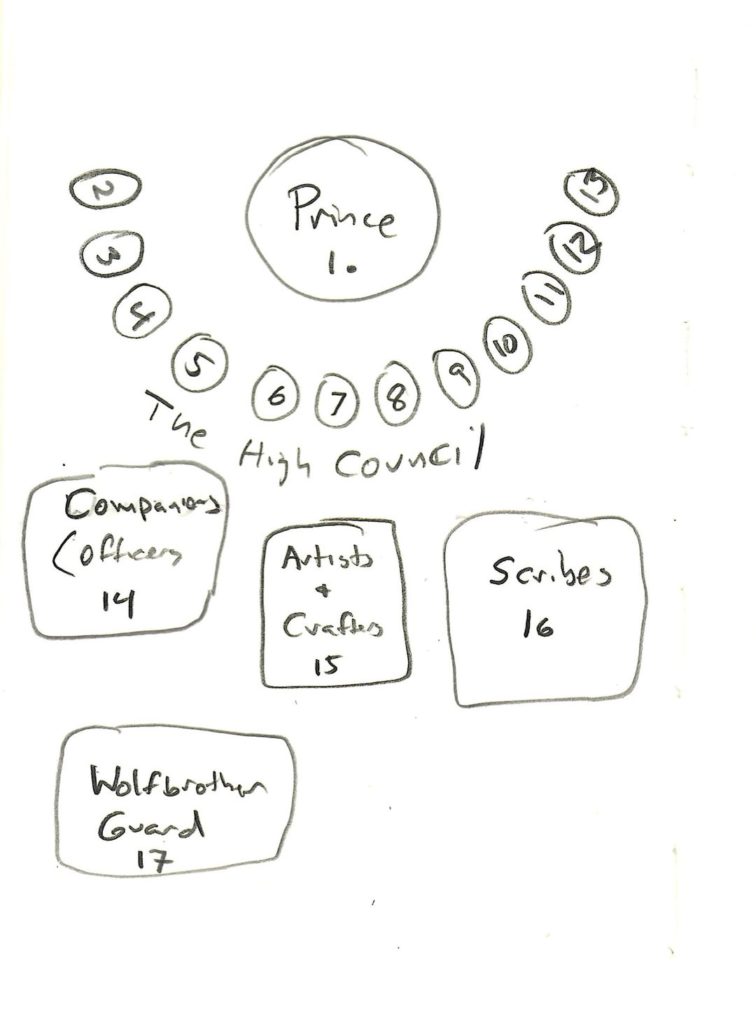 Prince
1.
2
3
4
5
6
7
8
9
10
11
12
13
The High Council
Companions
(Officers
14
Artists
+
Crafters
15
Scribes
16
Wolfbrother
Guard
17